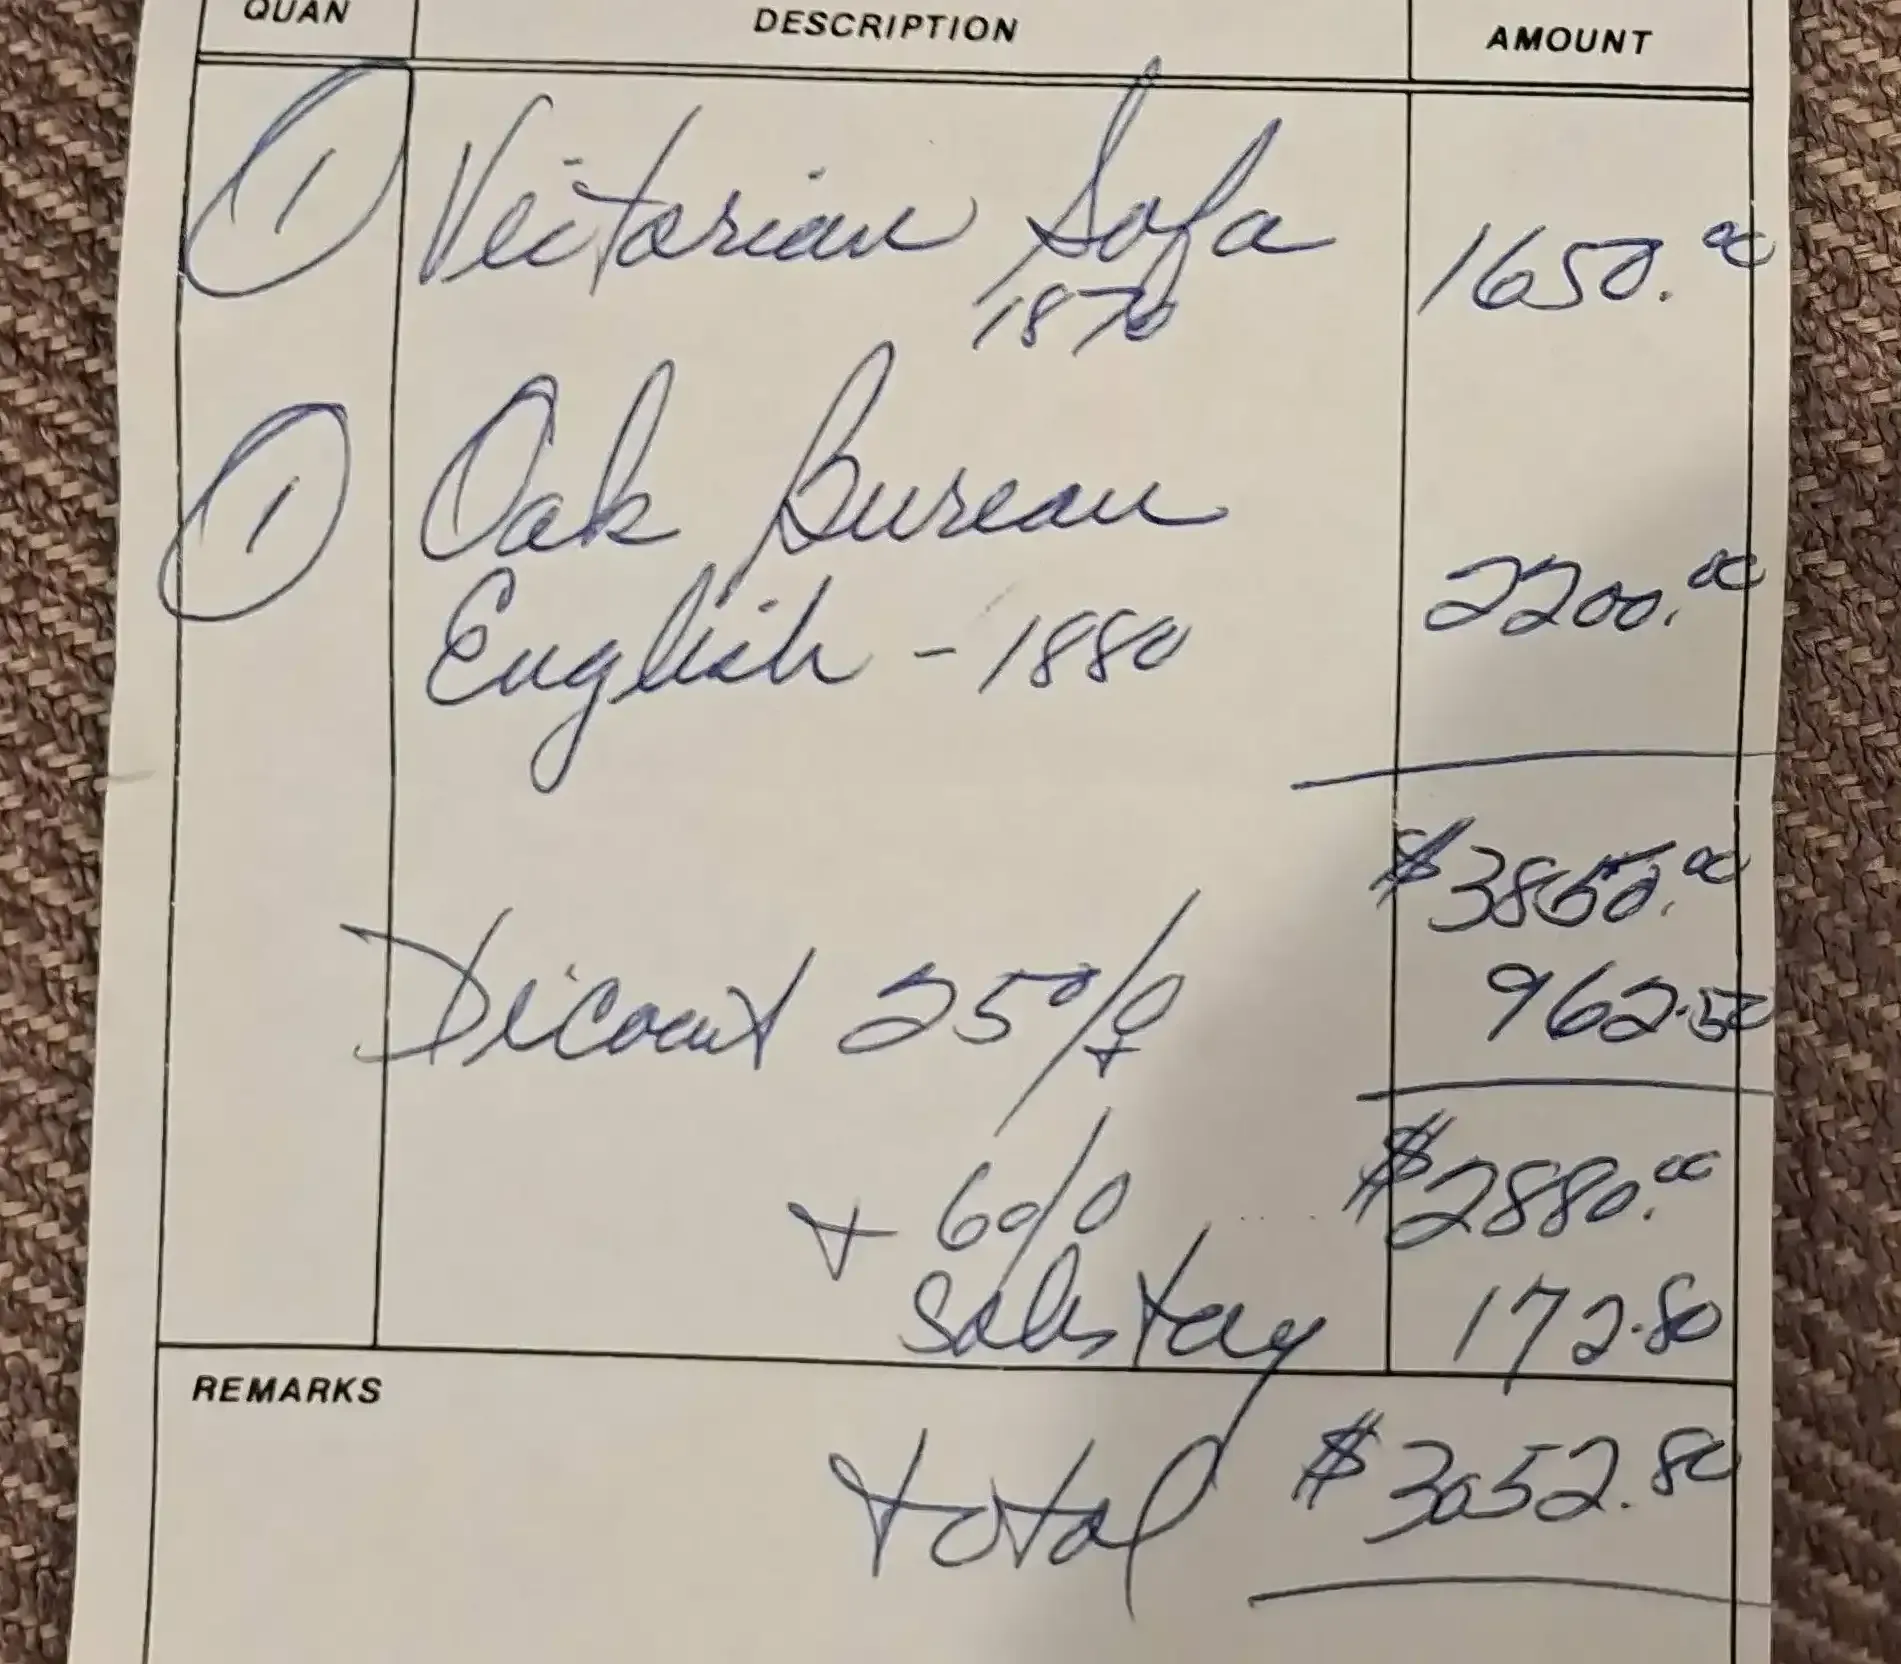 QUAN DESCRIPTION AMOUNT
1 Victorian Sofa 1650.00
1870
1 Oak Bureau
English - 1880 2200.00
$3850.00
Dicount 25% 962.50
$2880.00
+ 6%
Sales tax 172.80
REMARKS
total $3052.80